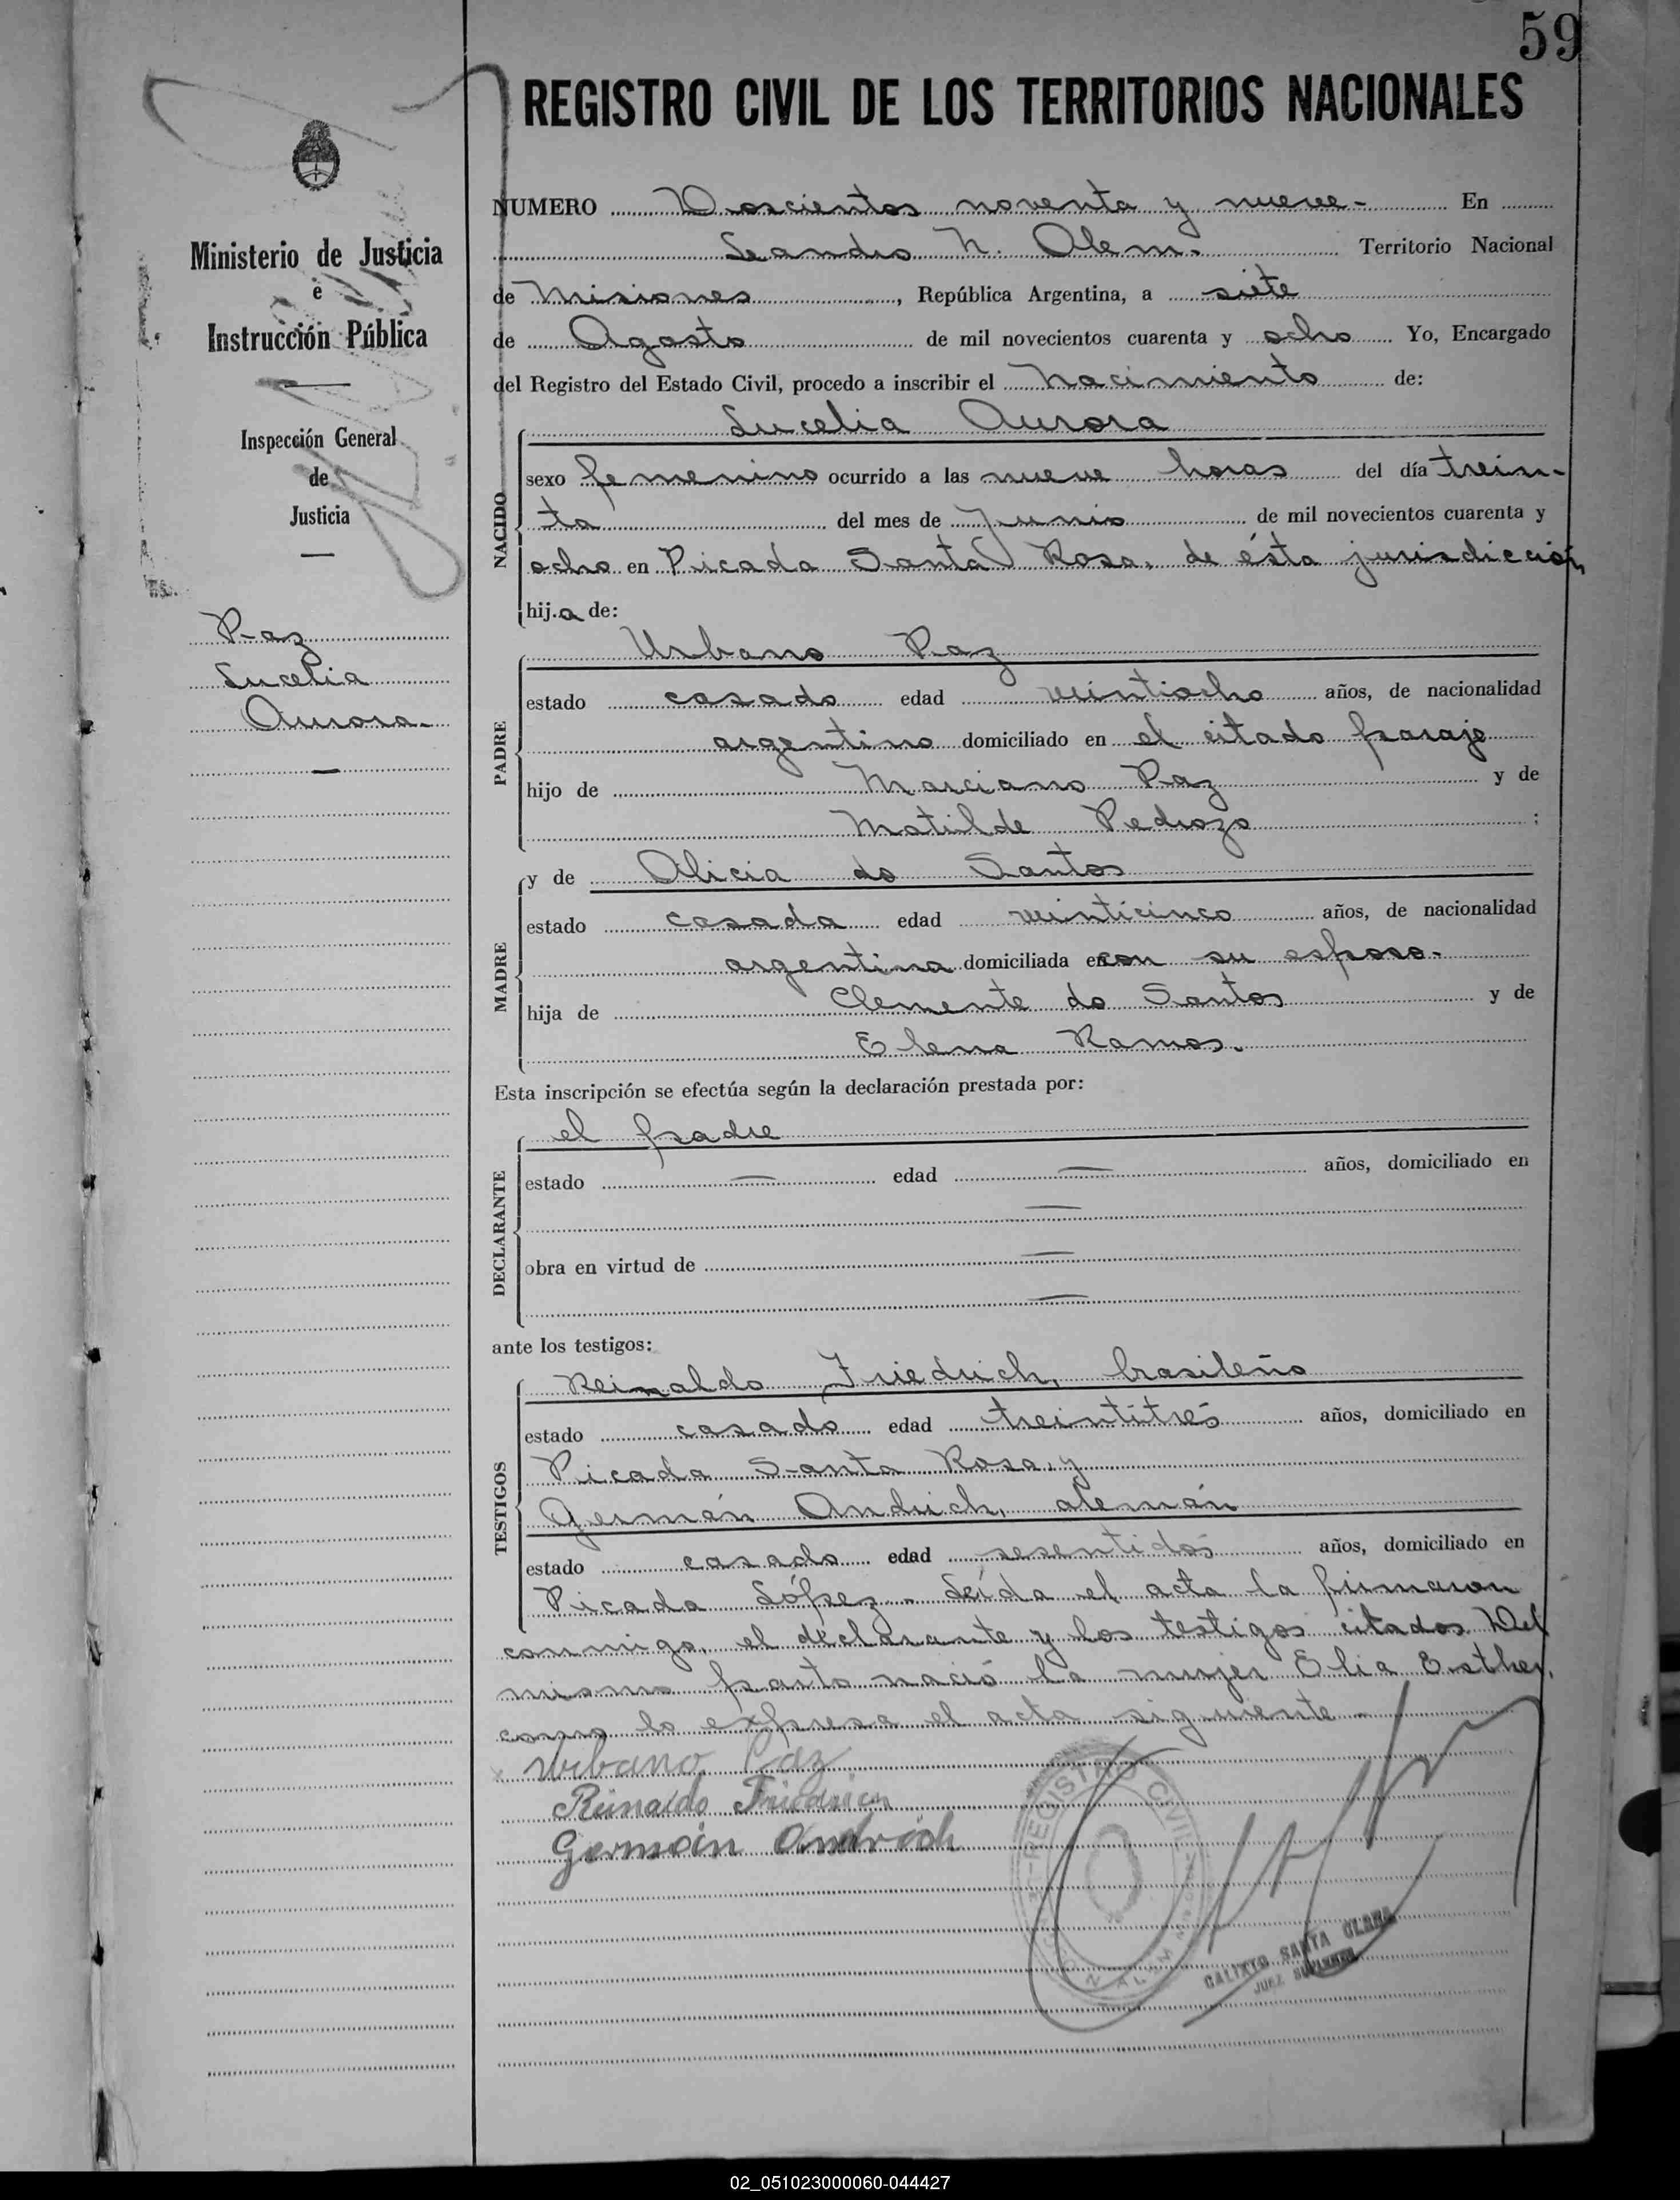 59
REGISTRO CIVIL DE LOS TERRITORIOS NACIONALES
Ministerio de Justicia
è
Instrucción Pública
Inspección General
de
Justicia
Paz
Lucelia
Aurora.
NUMERO Doscientos noventa y nueve- En
Leandro N. Alem. Territorio Nacional
de Misiones, República Argentina, a siete
de Agosto de mil novecientos cuarenta y ocho Yo, Encargado
del Registro del Estado Civil, procedo a inscribir el Nacimiento de:
NACIDO
Lucelia Aurora
sexo femenino ocurrido a las nueve horas del día trein-
ta del mes de Junio de mil novecientos cuarenta y
ocho en Picada Santa Rosa, de ésta jurisdicción
hija de:
PADRE
Urbano Paz
estado casado edad veintiocho años, de nacionalidad
argentino domiciliado en el citado paraje
hijo de Marciano Paz y de
Matilde Pedrozo ;
MADRE
y de Alicia do Santos
estado casada edad veinticinco años, de nacionalidad
argentina domiciliada en con su esposo.
hija de Clemente do Santos y de
Elena Ramos.
Esta inscripción se efectúa según la declaración prestada por:
DECLARANTE
el padre
estado — edad — años, domiciliado en
—
obra en virtud de —
—
ante los testigos:
TESTIGOS
Reinaldo Friedrich, brasileño
estado casado edad treintitrés años, domiciliado en
Picada Santa Rosa, y
Germán Andrich, alemán
estado casado edad sesentidós años, domiciliado en
Picada López.- Leída el acta la firmaron
conmigo, el declarante y los testigos citados. Del
mismo parto nació la mujer Elia Esther,
como lo expresa el acta siguiente.-
Urbano Paz
Reinaldo Friedrich
Germán Andrich
REGISTRO CIVIL
CALIXTO SANTA CLARA
JUEZ SUPLENTE
02_051023000060-044427